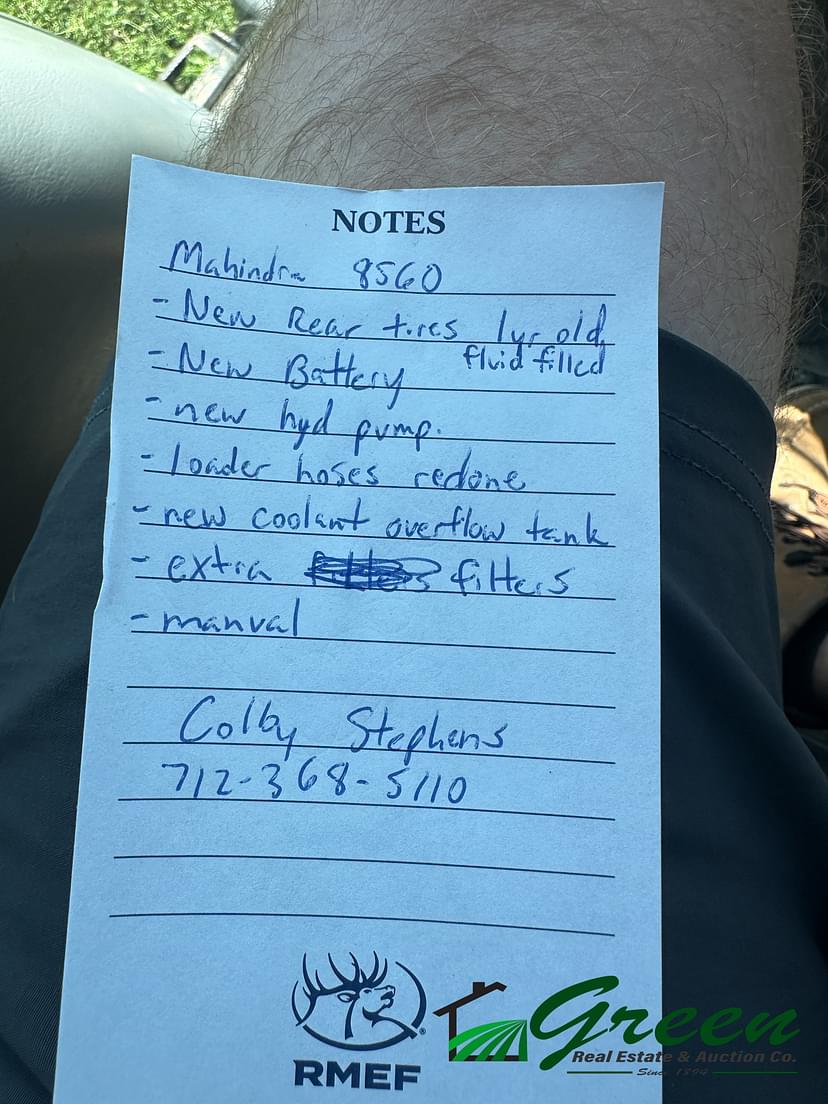 NOTES
Mahindra 8560
- New Rear tires 1yr old,
fluid filled
- New Battery
- new hyd pump.
- loader hoses redone
- new coolant overflow tank
- extra filters
- manual
Colby Stephens
712-368-5110
RMEF
Green
Real Estate & Auction Co.
Since 1894